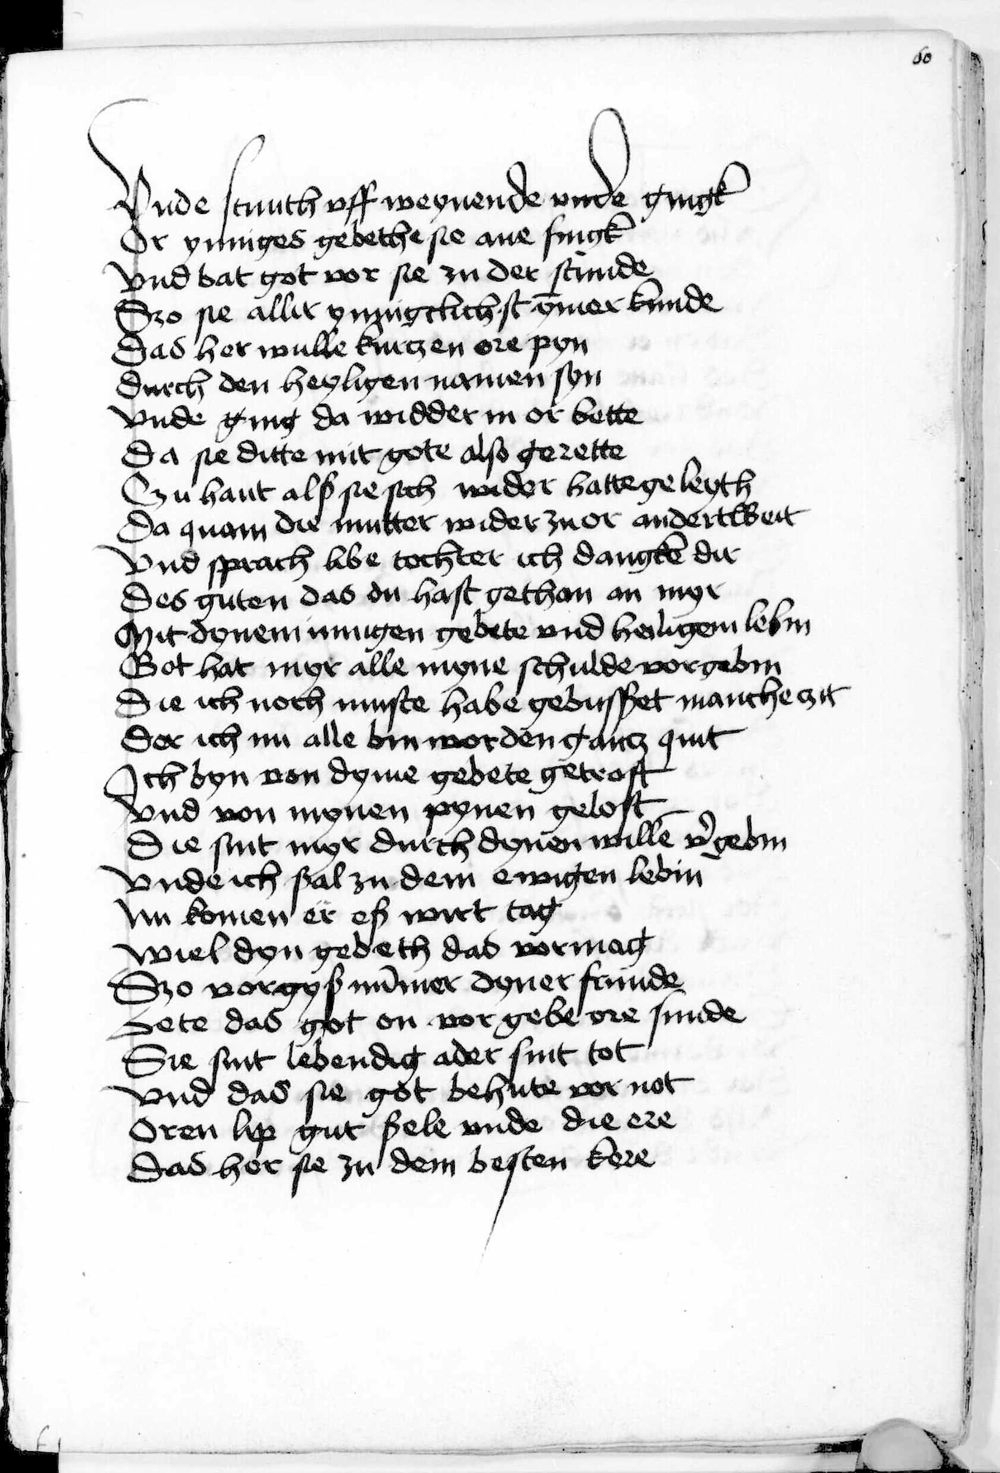 60
Vnde stunth vff weynende vnde gingk
Or ynniges gebethe sie ane fingk
vnd bat got vor sie zu der stunde
Szo sie allir ynnigclichst ȳmer kunde
Das her wulle kurtzen ore pyn
durch den heyligen namen syn
vnde ging da widder in or bette
Da sie ditte mit gote also gerette
Czu hant alß sie sich wider hatte geleyth
Da quam die mutter wider zu or andertweit
Vnd sprach libe tochter ich dangke dir
Des guten das du hast gethan an myr
Mit dynem innigen gebete vnd heiligem lebin
Got hat myr alle myne schulde vorgebin
Die ich noch muste habe gebusset manche czit
Der ich nu alle bin worden gantz quit
Ich byn von dyme gebete getrost
Vnd von mynen pynen gelost
Die sint myr durch dynen willē v'gebin
Vnde ich sal zu dem ewigen lebin
Nu komen er eß wirt tag
wiel dyn gebeth das vormag
Szo vorgyß nūmer dyner frunde
Bete das got on vorgebe ore sunde
Sie sint lebendig ader sint tot
Vnd das sie got behute vor not
Oren lip gut sele vnde die ere
Das her sie zu dem besten kere